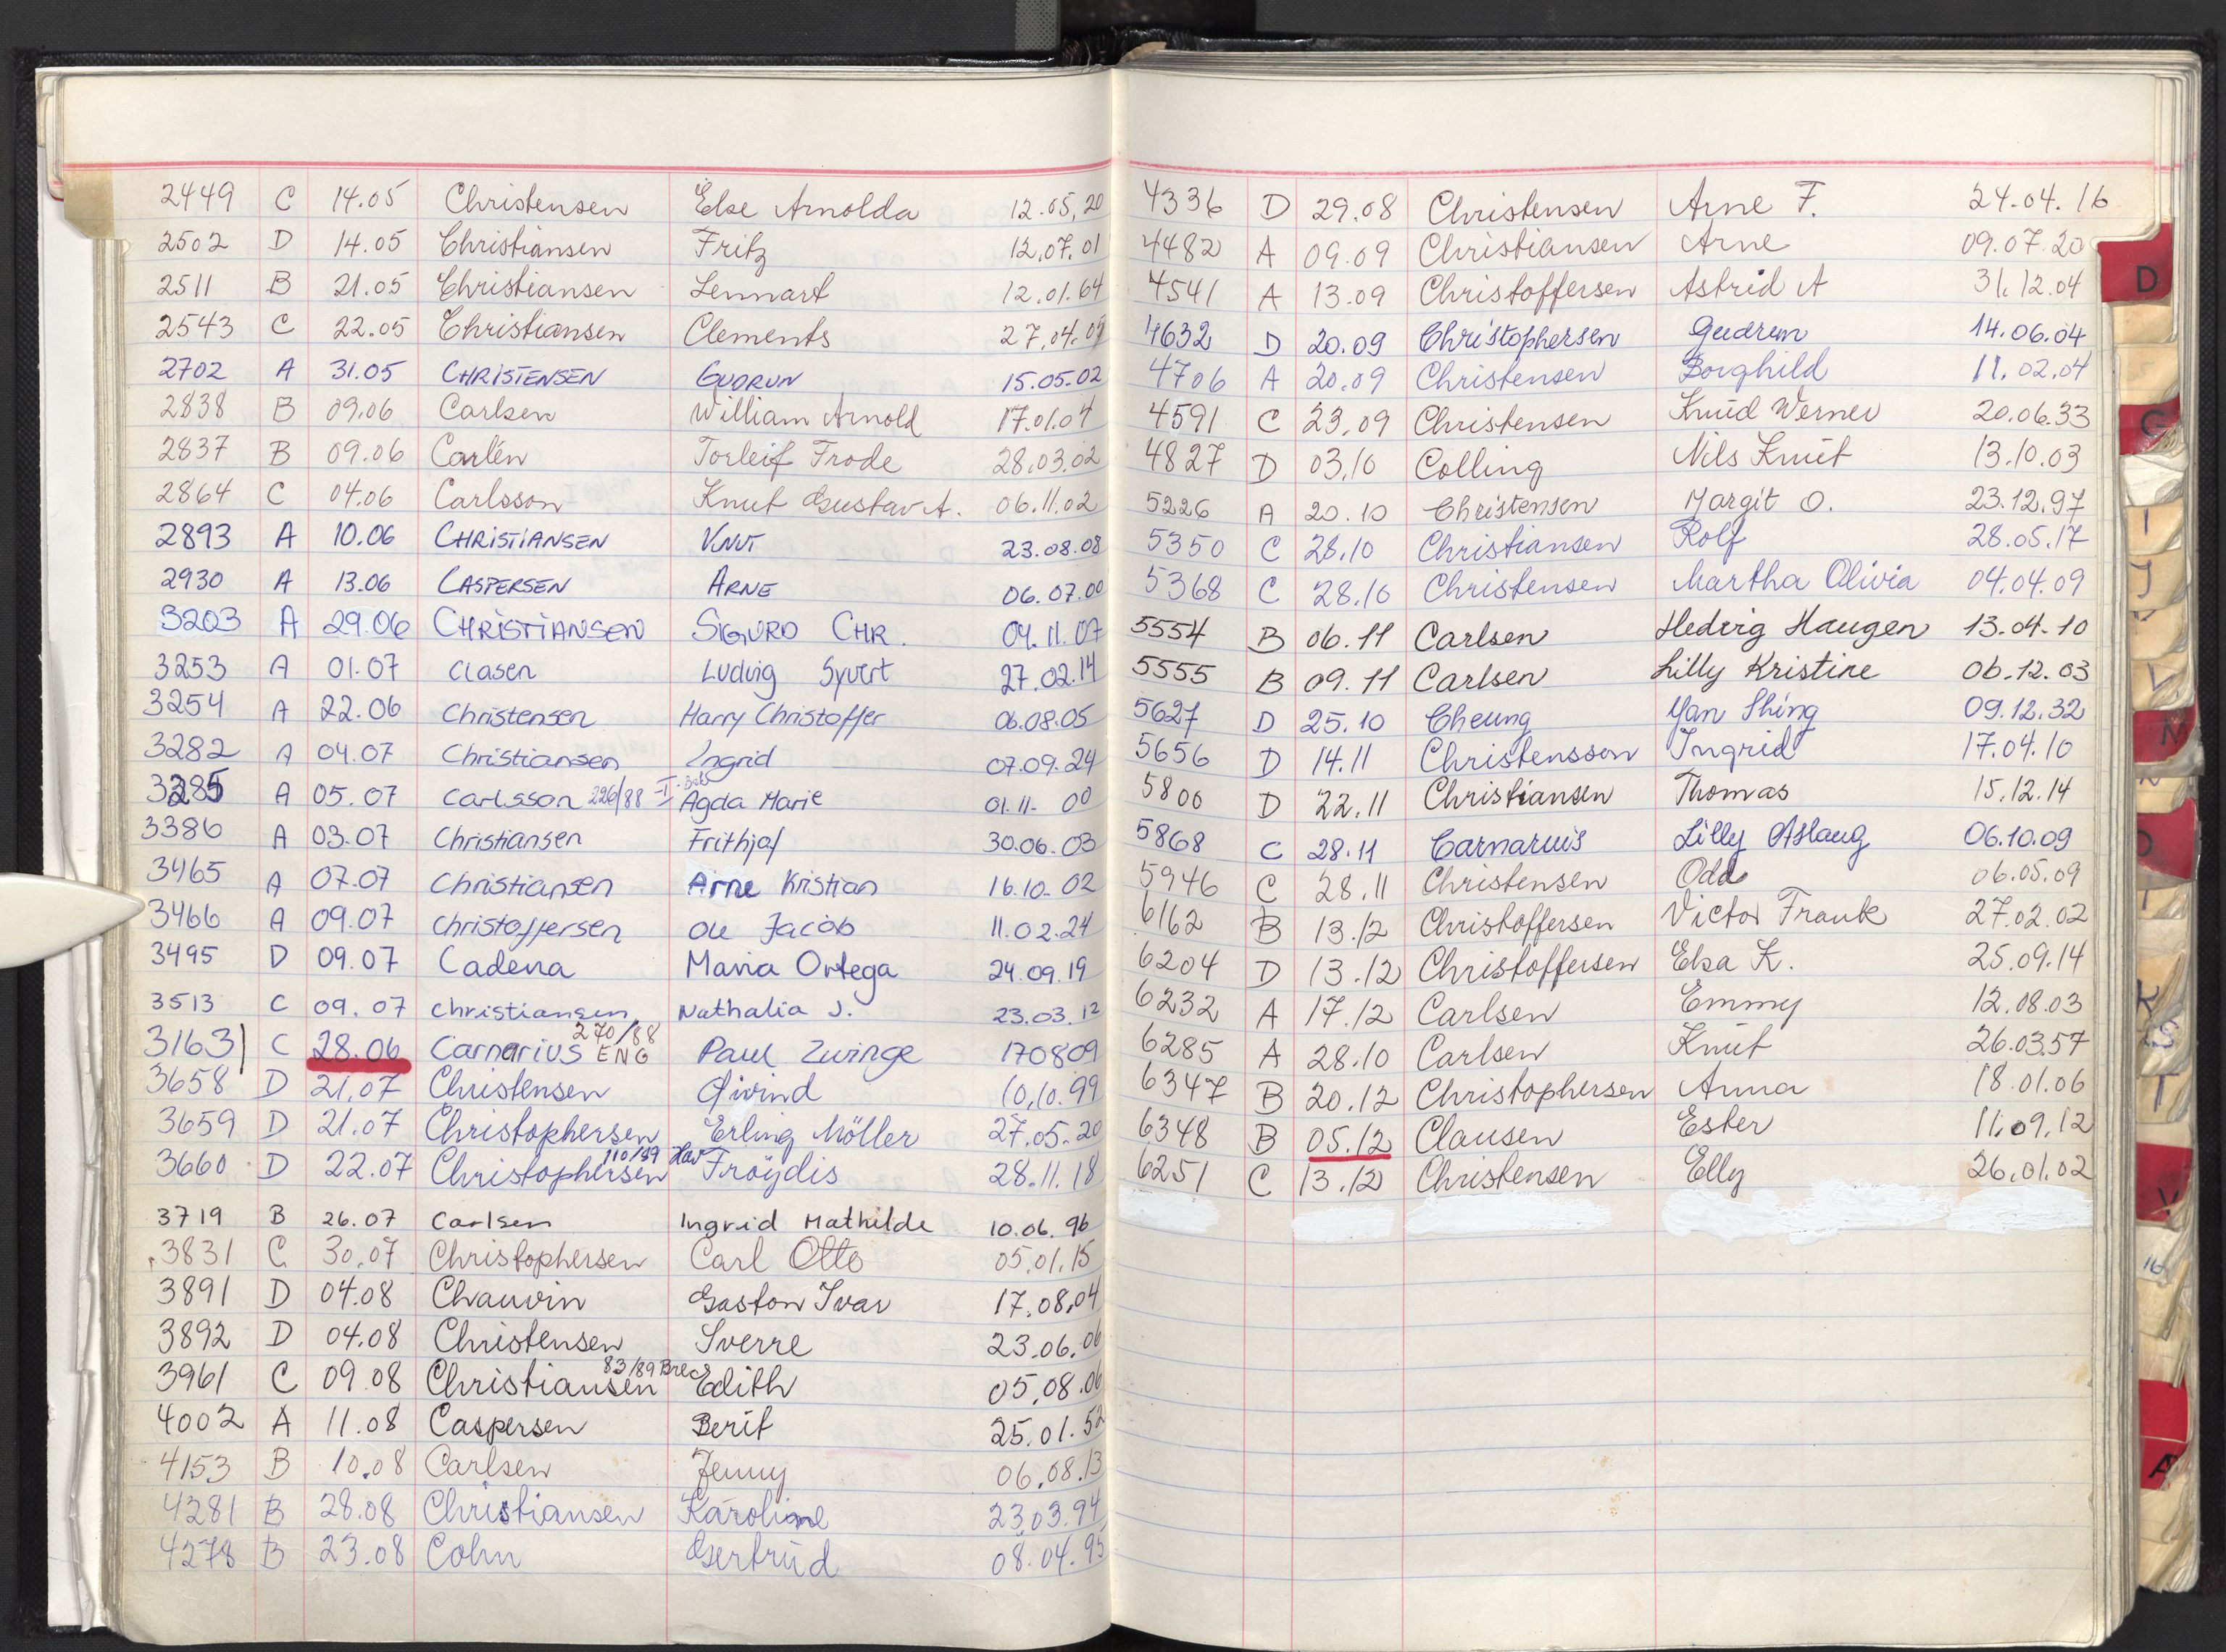 2449 C 14.05 Christensen Else Arnolda 12.05.20
2502 D 14.05 Christiansen Fritz 12.07.01
2511 B 21.05 Christiansen Lennart 12.01.64
2543 C 22.05 Christiansen Clements 27.04.09
2702 A 31.05 CHRISTENSEN GUDRUN 15.05.02
2838 B 09.06 Carlsen William Arnold 17.01.04
2837 B 09.06 Carlén Torleif Frode 28.03.02
2864 C 04.06 Carlsson Knut Gustav A. 06.11.02
2893 A 10.06 CHRISTIANSEN KNUT 23.08.08
2930 A 13.06 CASPERSEN ARNE 06.07.00
3203 A 29.06 CHRISTIANSEN SIGURD CHR. 04.11.07
3253 A 01.07 Clasen Ludvig Syvert 27.02.14
3254 A 22.06 Christensen Harry Christoffer 06.08.05
3282 A 04.07 Christiansen Ingrid 07.09.24
3285 A 05.07 Carlsson 226/88 Agda Marie 01.11.00
3386 A 03.07 Christiansen Frithjof 30.06.03
3465 A 07.07 Christiansen Arne Kristian 16.10.02
3466 A 09.07 Christoffersen Ole Jacob 11.02.24
3495 D 09.07 Cadena Maria Ortega 24.09.19
3513 C 09.07 Christiansen Nathalia J. 23.03.12
270/88
3163 C 28.06 Carnarius ENG Paul Zwinge 170809
3658 D 21.07 Christensen Øivind 10.10.99
3659 D 21.07 Christophersen Erling Möller 27.05.20
110/89
3660 D 22.07 Christophersen Fröydis 28.11.18
3719 B 26.07 Carlsen Ingrid Mathilde 10.06.96
3831 C 30.07 Christophersen Carl Otto 05.01.15
3891 D 04.08 Chauvin Gaston Ivar 17.08.04
3892 D 04.08 Christensen Sverre 23.06.06
83/89 Brec
3961 C 09.08 Christiansen Edith 05.08.06
4002 A 11.08 Caspersen Berit 25.01.52
4153 B 10.08 Carlsen Jenny 06.08.13
4281 B 28.08 Christiansen Karoline 23.03.94
4278 B 23.08 Cohn Gertrud 08.04.95
4336 D 29.08 Christensen Arne F. 24.04.16
4482 A 09.09 Christiansen Arne 09.07.20
4541 A 13.09 Christoffersen Astrid A 31.12.04
4632 D 20.09 Christophersen Gudrun 14.06.04
4706 A 20.09 Christensen Borghild 11.02.04
4591 C 23.09 Christensen Knud Werner 20.06.33
4827 D 03.10 Colling Nils Knut 13.10.03
5226 A 20.10 Christensen Margit O. 23.12.97
5350 C 28.10 Christiansen Rolf 28.05.17
5368 C 28.10 Christensen Martha Olivia 04.04.09
5554 B 06.11 Carlsen Hedvig Haugen 13.04.10
5555 B 09.11 Carlsen Lilly Kristine 06.12.03
5627 D 25.10 Cheung Yan Shing 09.12.32
5656 D 14.11 Christensson Ingrid 17.04.10
5800 D 22.11 Christiansen Thomas 15.12.14
5868 C 28.11 Carnarius Lilly Aslaug 06.10.09
5946 C 28.11 Christensen Odd 06.05.09
6162 B 13.12 Christoffersen Victor Frank 27.02.02
6204 D 13.12 Christoffersen Elsa K. 25.09.14
6232 A 17.12 Carlsen Emmy 12.08.03
6285 A 28.10 Carlsen Knut 26.03.57
6347 B 20.12 Christophersen Anna 18.01.06
6348 B 05.12 Clausen Ester 11.09.12
6251 C 13.12 Christensen Elly 26.01.02
D
G
I
J
V
N
K
S
T
V
16